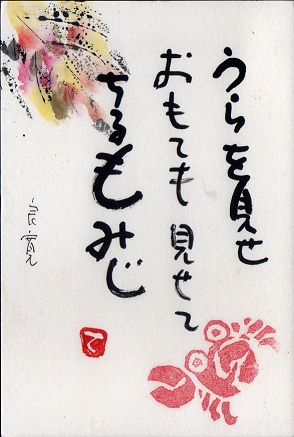 うらを見せ
おもても見せて
ちるもみじ
良寛
て